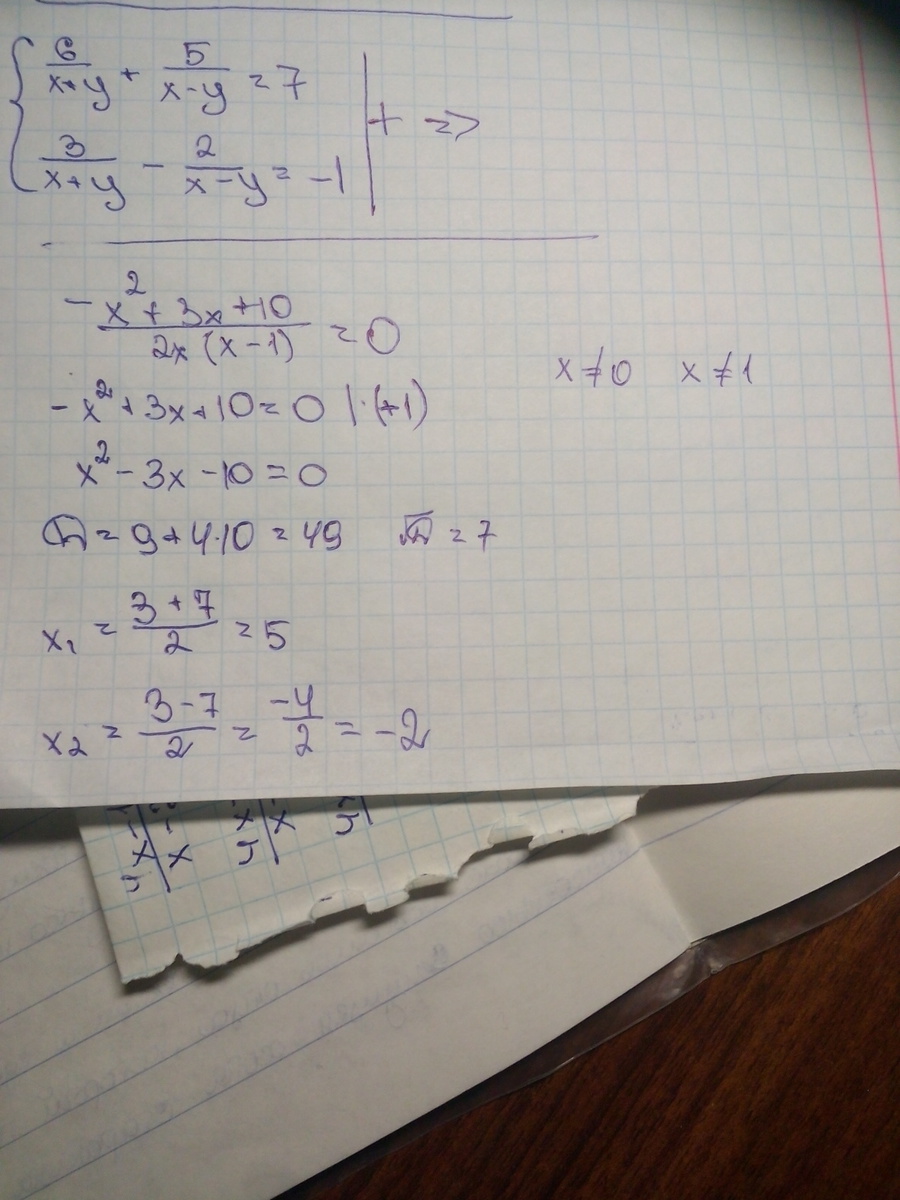 { 6/(x+y) + 5/(x-y) = 7 | + =>
3/(x+y) - 2/(x-y) = -1
(-x² + 3x + 10)/(2x(x-1)) = 0
x ≠ 0 x ≠ 1
-x² + 3x + 10 = 0 | · (-1)
x² - 3x - 10 = 0
D = 9 + 4·10 = 49 √D = 7
x₁ = (3+7)/2 = 5
x₂ = (3-7)/2 = -4/2 = -2